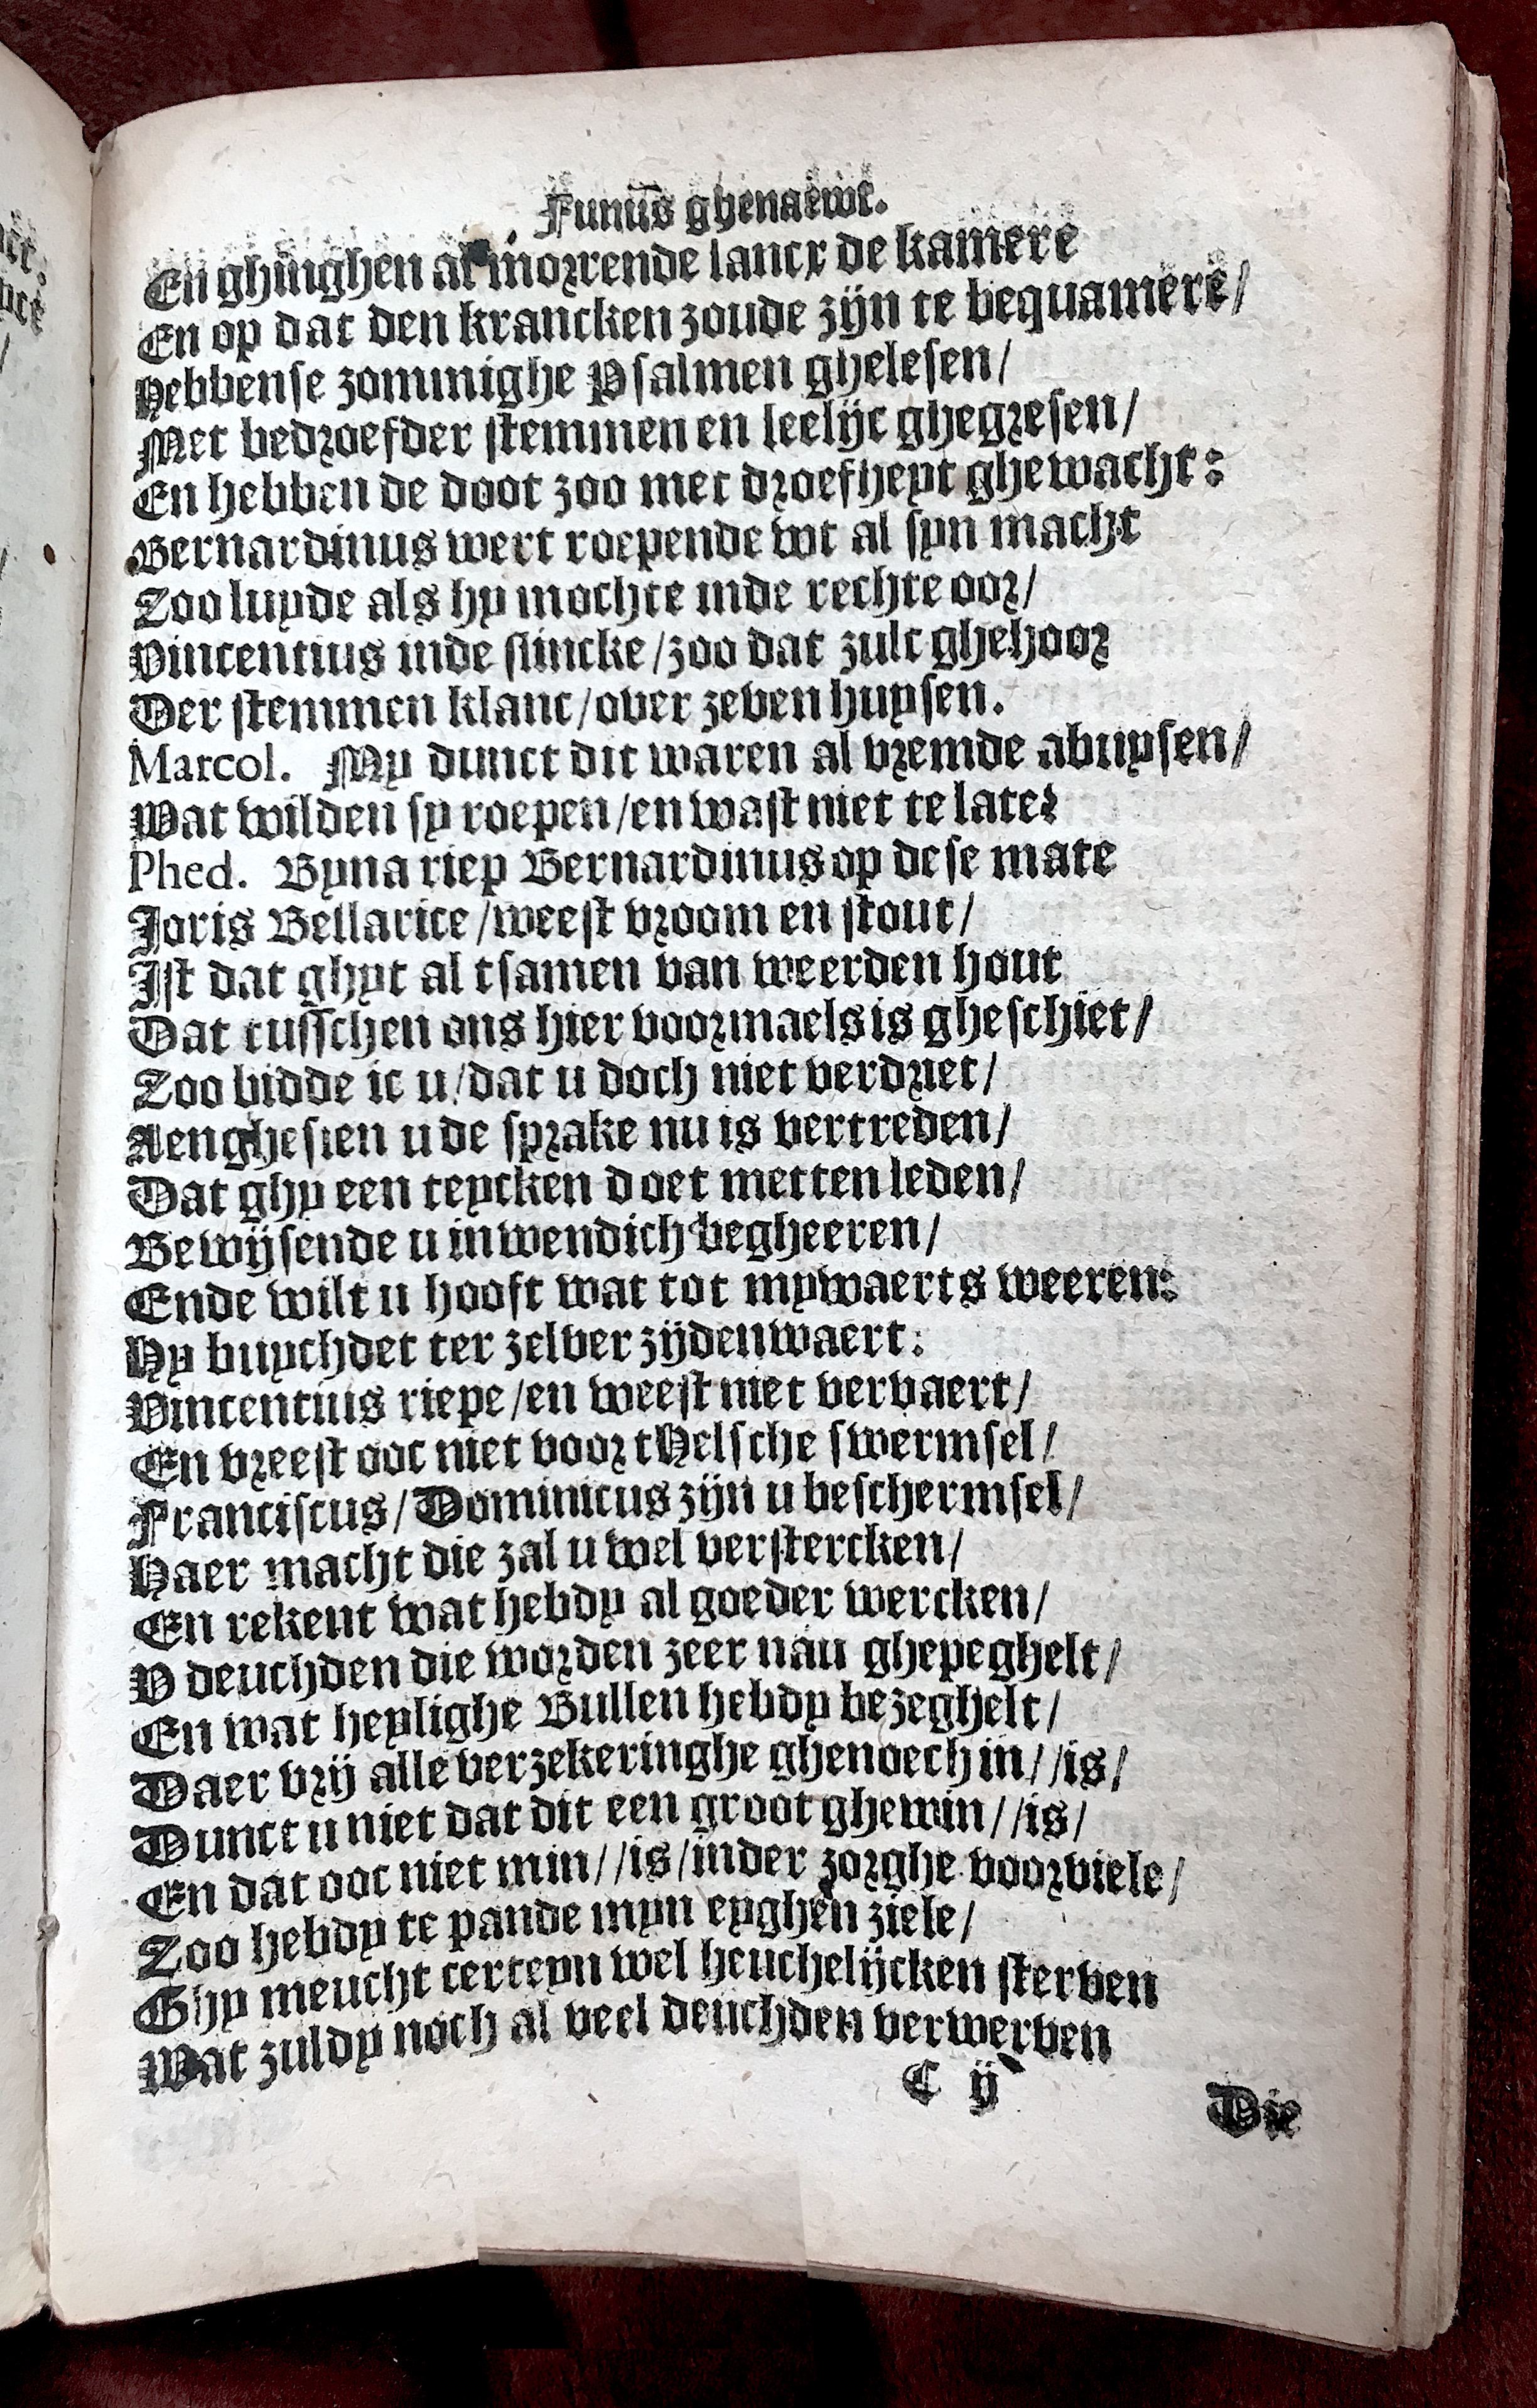 Funus ghenaemt.
En ghinghen al morrende lancx de kamere
En op dat den krancken zoude zijn te bequamere/
Hebbense zommighe Psalmen ghelesen/
Met bedroefder stemmen en leelijc ghegresen/
En hebben de doot zoo met droefheyt ghewacht:
Bernardinus wert roepende wt al syn macht
Zoo luyde als hy mochte inde rechte oor/
Vincentius inde slincke/zoo dat zulc ghehoor
Der stemmen klanc/over zeven huysen.
Marcol. My dunct dit waren al vremde abuysen/
Wat wilden sy roepen/en wast niet te late?
Phed. Byna riep Bernardinus op dese mate
Joris Bellarice/weest vroom en stout/
Ist dat ghyt al tsamen van weerden hout
Dat tusschen ons hier voormaels is gheschiet/
Zoo bidde ic u/dat u doch niet verdriet/
Aenghesien u de sprake nu is vertreden/
Dat ghy een teycken doet metten leden/
Bewijsende u inwendich begheeren/
Ende wilt u hooft wat tot mywaerts weeren:
Hy buychdet ter zelver zijdenwaert:
Vincentius riepe/en weest niet vervaert/
En vreest ooc niet voor tHelsche swermsel/
Franciscus/Dominicus zijn u beschermsel/
Haer macht die zal u welverstercken/
En rekent wat hebdy al goeder wercken/
V deuchden die worden zeer nau ghepeghelt/
En wat heylighe Bullen hebdy bezeghelt/
Daer vrij alle verzekeringhe ghenoech in//is/
Dunct u niet dat dit een groot ghewin//is/
En dat ooc niet min//is/inder zorghe voorviele/
Zoo hebdy te pande myn eyghen ziele/
Ghy meucht certeyn wel heuchelijcken sterven
Wat zuldy noch al veel deuchden verwerven
C ij
Die